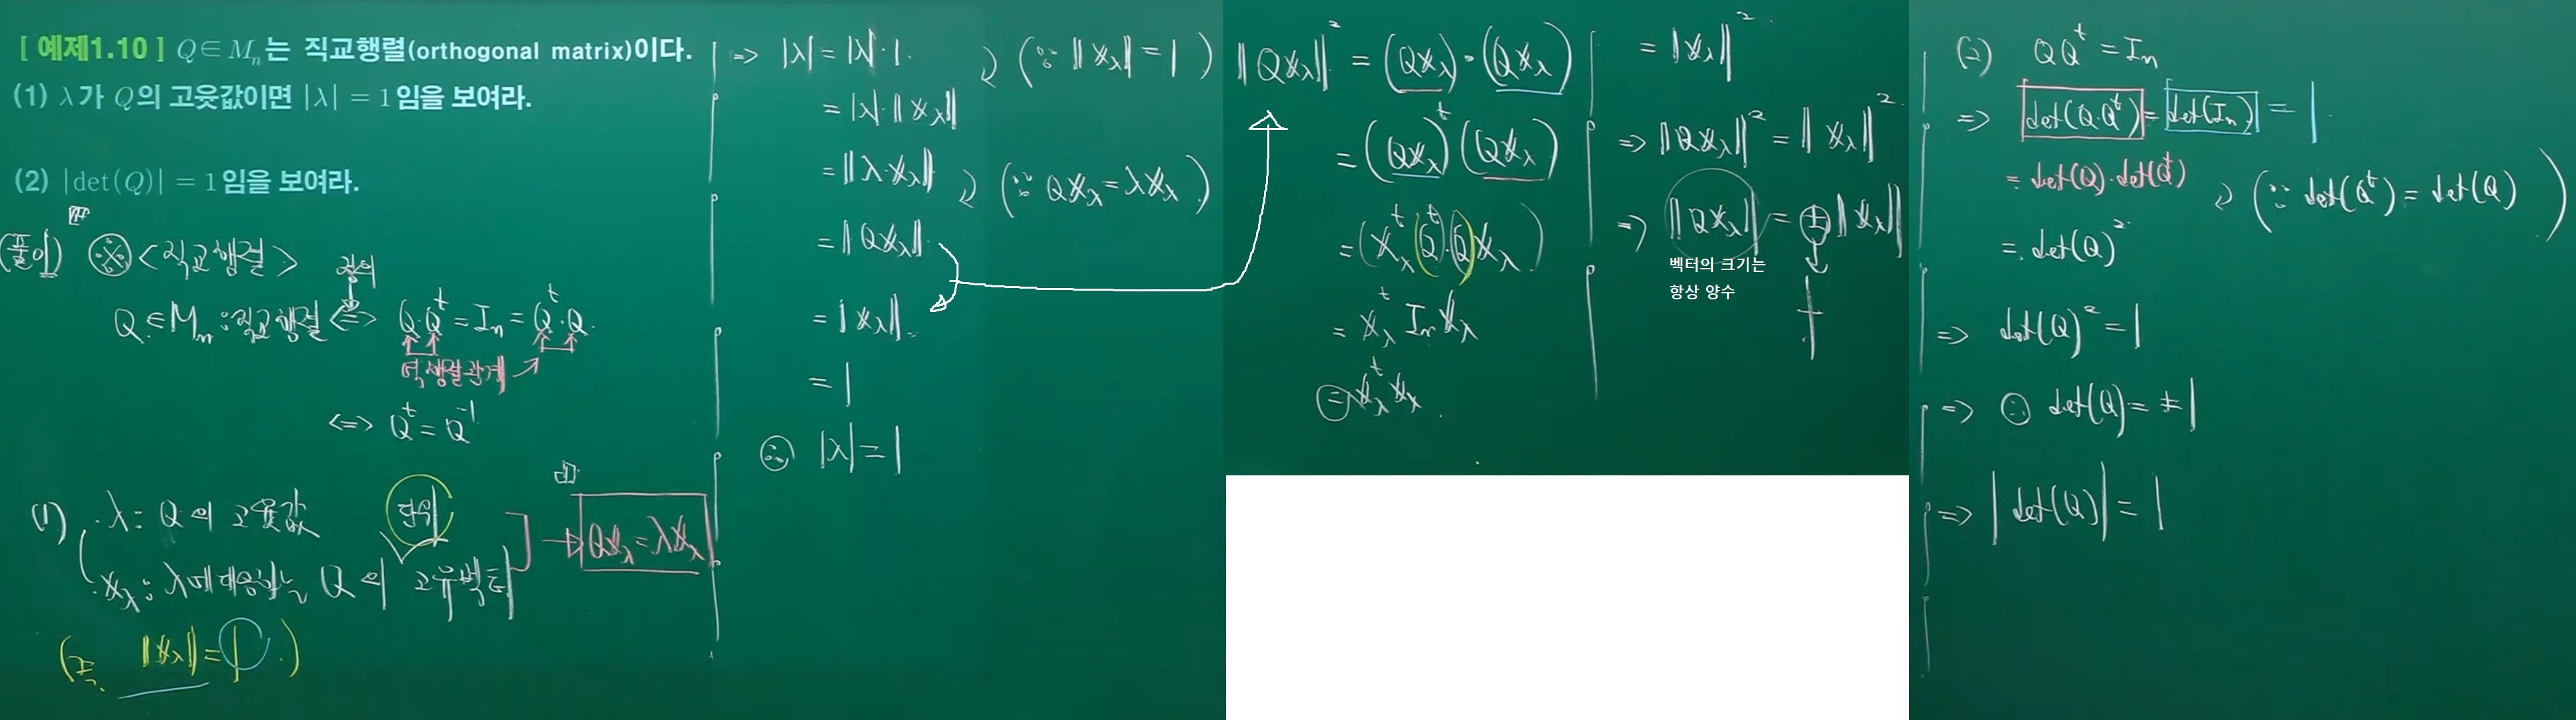 [ 예제1.10 ] Q∈Mₙ는 직교행렬(orthogonal matrix)이다.
(1) λ가 Q의 고윳값이면 |λ| = 1임을 보여라.
(2) |det(Q)| = 1임을 보여라.
(풀이) ※ <직교행렬>
정의
Q∈Mₙ : 직교행렬 <=> Q·Qᵗ = Iₙ = Qᵗ·Q.
역행렬관계
<=> Qᵗ = Q⁻¹
(1) · λ : Q의 고윳값
단위
· x_λ : λ에 대응하는 Q의 고유벡터
Qx_λ = λx_λ
(즉, ‖x_λ‖ = 1.)
=> |λ| = |λ|·1.
= |λ|·‖x_λ‖ (∵ ‖x_λ‖ = 1)
= ‖λ·x_λ‖
= ‖Qx_λ‖. (∵ Qx_λ = λx_λ)
= ‖x_λ‖.
= 1
∴ |λ| = 1
‖Qx_λ‖² = (Qx_λ)·(Qx_λ)
= (Qx_λ)ᵗ(Qx_λ)
= (x_λᵗ Qᵗ·Q x_λ)
= x_λᵗ Iₙ x_λ
= x_λᵗ x_λ.
= ‖x_λ‖².
=> ‖Qx_λ‖² = ‖x_λ‖².
=> ‖Qx_λ‖ = ±‖x_λ‖
벡터의 크기는
항상 양수
+
(2) QQᵗ = Iₙ
=> det(Q·Qᵗ) = det(Iₙ) = 1.
= det(Q)·det(Qᵗ)
= det(Q)² (∵ det(Qᵗ) = det(Q))
=> det(Q)² = 1
=> ∴ det(Q) = ±1
=> |det(Q)| = 1